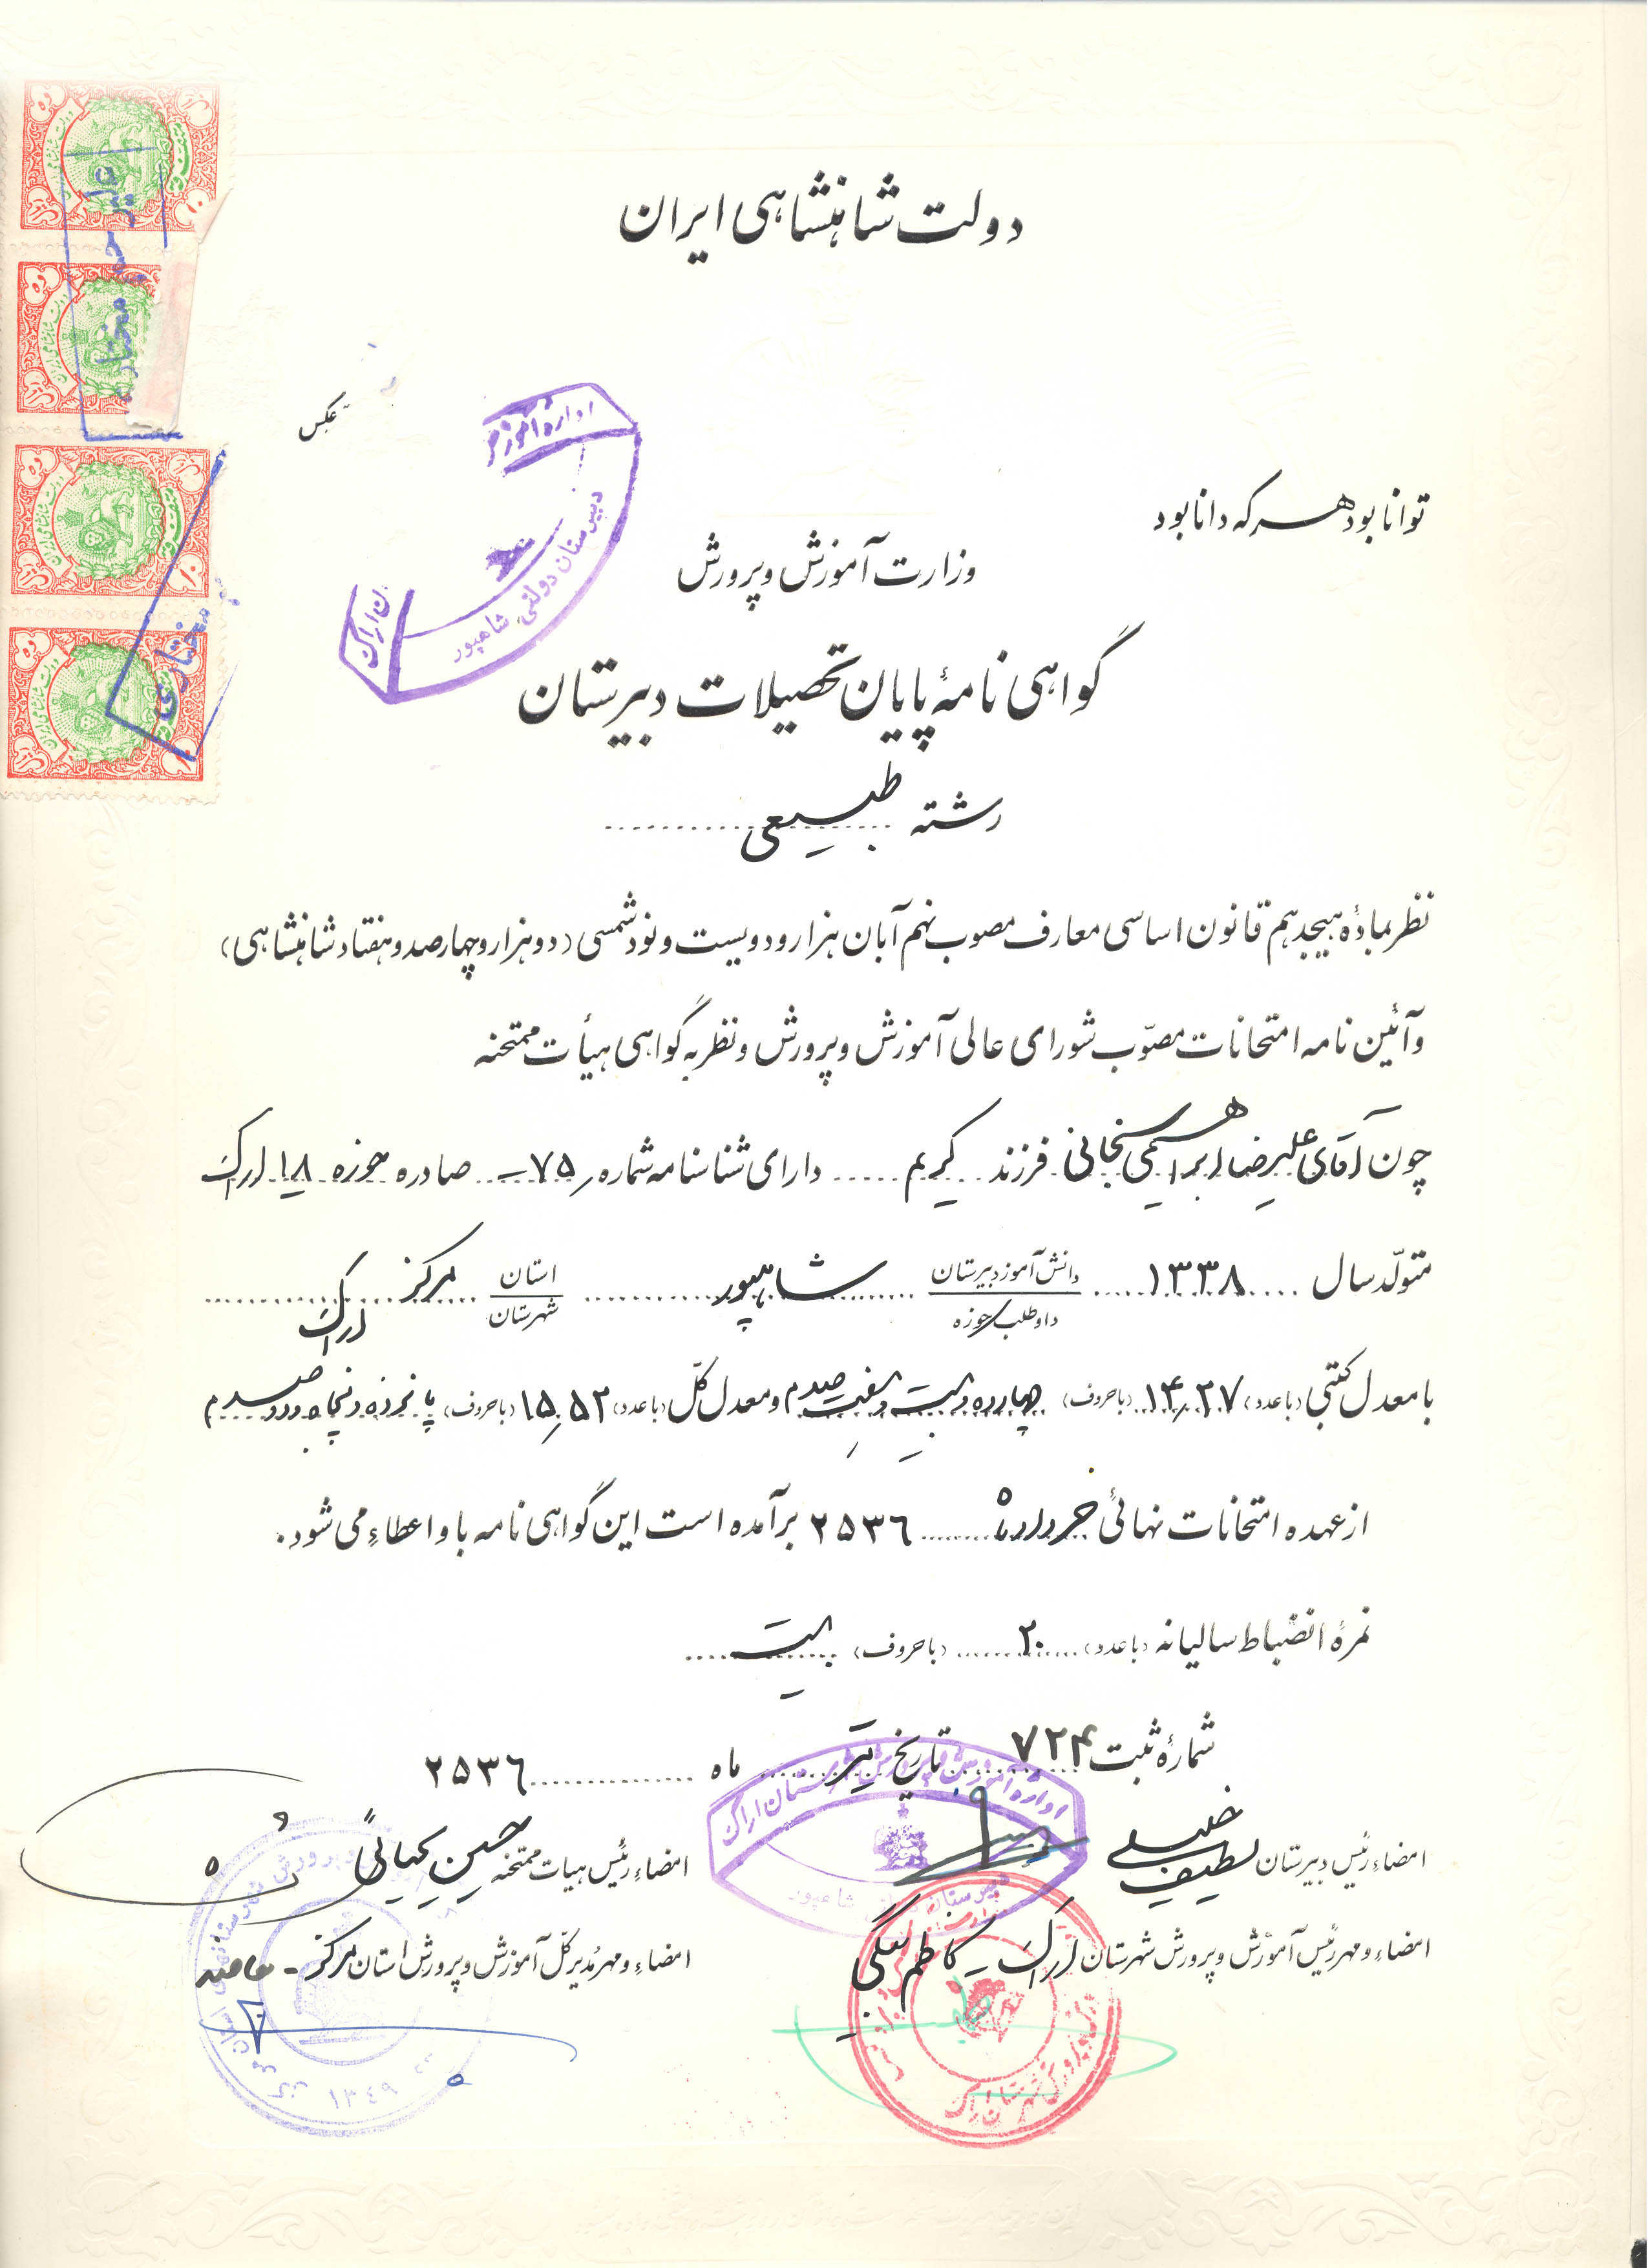 دولت شاهنشاهی ایران
عکس
توانا بود هر که دانا بود
وزارت آموزش و پرورش
گواهی نامهٔ پایان تحصیلات دبیرستان
رشته طبیعی
نظر بمادهٔ هیجدهم قانون اساسی معارف مصوب نهم آبان هزار و دویست و نود شمسی (دو هزار و چهارصد و هفتاد شاهنشاهی)
و آئین نامه امتحانات مصوّب شورای عالی آموزش و پرورش و نظر به گواهی هیأت ممتحنه
چون آقای علیرضا ابراهیمی سنجانی فرزند کریم دارای شناسنامه شماره ۷۵ صادره حوزه ۱۸ اراک
متولّد سال ۱۳۳۸ دانش آموز دبیرستان شاهپور استان مرکز
داوطلب حوزه شهرستان اراک
با معدل کتبی (با عدد) ۱۴٫۲۷ (با حروف) چهارده و بیست و هفت صدم و معدل کلّ (با عدد) ۱۵٫۵۲ (با حروف) پانزده و پنجاه و دو صدم
از عهده امتحانات نهائی خرداد ماه ۲۵۳۶ برآمده است این گواهی نامه باو اعطاء می شود.
نمرهٔ انضباط سالیانه (با عدد) ۲۰ (با حروف) بیست
شمارهٔ ثبت ۷۲۴ تاریخ تیر ماه ۲۵۳۶
امضاء رئیس دبیرستان لطیف خلیلی
امضاء رئیس هیات ممتحنه حسین یحیائی
امضاء و مهر رئیس آموزش و پرورش شهرستان اراک - کاظم
امضاء و مهر مدیر کلّ آموزش و پرورش استان مرکز -
اداره آموزش
دبیرستان دولتی شاهپور
اداره آموزش و پرورش شهرستان اراک
دبیرستان شاهپور
پرورش شهرستان اراک
۱۳۴۹